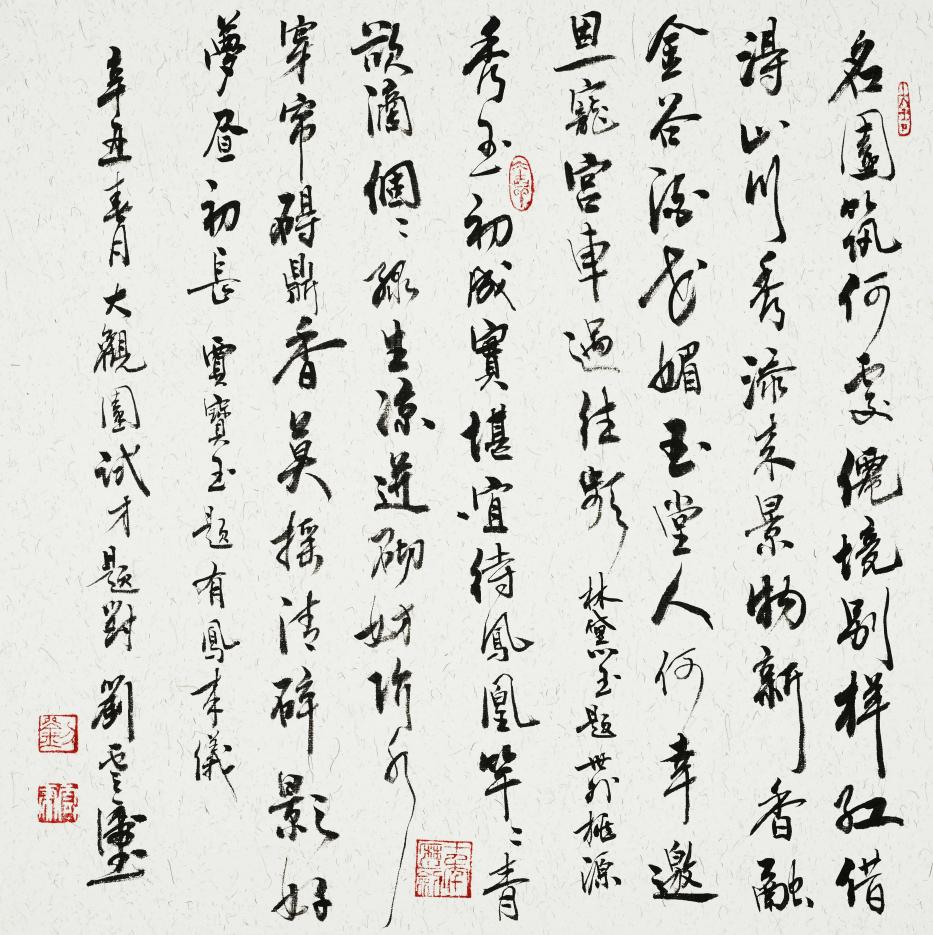 名園筑何處僊境別樣红借
得山川秀添来景物新香融
金谷酒花媚玉堂人何幸邀
恩寵宮車過往頻 林黛玉題世外桃源
秀玉初成實堪宜待鳳凰竿〻青
欲滴個〻綠生凉迸砌妨階水
穿帘碍鼎香莫摇清碎影好
夢昼初長 賈寶玉題有鳳来儀
辛丑春月大觀園試才題對 劉雲